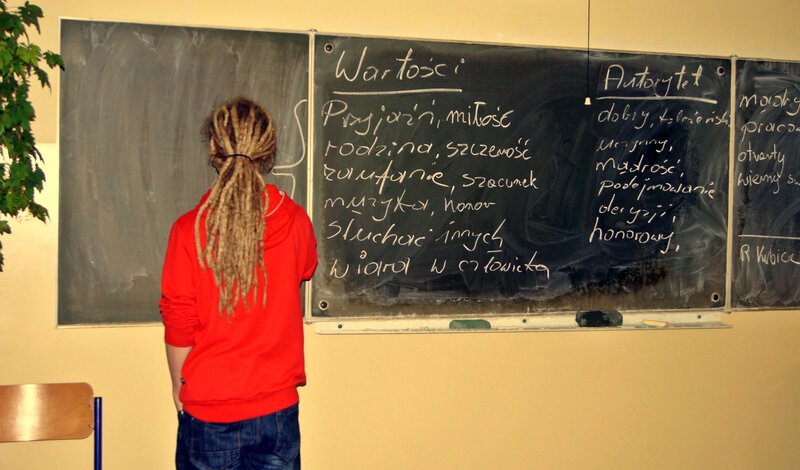 Wartości
Przyjaźń, miłość
rodzina, szczerość
zaufanie, szacunek
muzyka, honor
słuchać innych
wiara w człowieka
Autorytet
dobry,
mądrość,
podejmowanie
decyzji,
honorowy,
mądry
otwarty
wierny
R Kubica